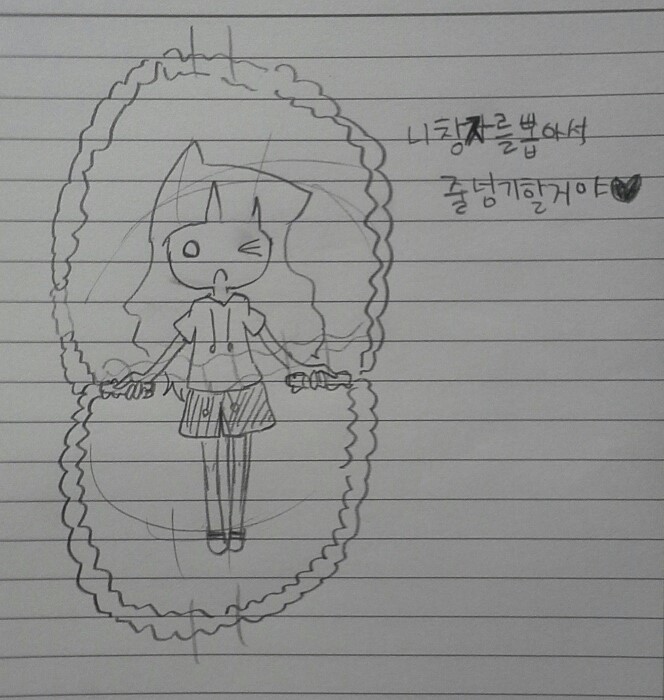 니창자를뽑아서
줄넘기할거야♥